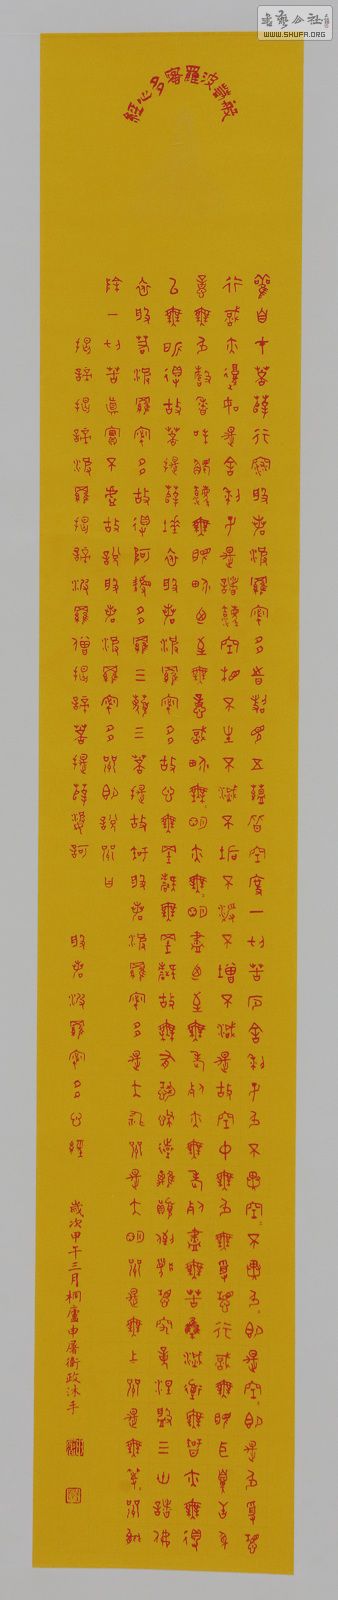 書藝公社
WWW.SHUFA.ORG
般若波羅蜜多心經
觀自在菩薩行深般若波羅蜜多時照見五蘊皆空度一切苦厄舍利子色不異空空不異色色即是空空即是色受想
行識亦復如是舍利子是諸法空相不生不滅不垢不淨不增不減是故空中無色無受想行識無眼耳鼻舌身
意無色聲香味觸法無眼界乃至無意識界無無明亦無無明盡乃至無老死亦無老死盡無苦集滅道無智亦無得
以無所得故菩提薩埵依般若波羅蜜多故心無罣礙無罣礙故無有恐怖遠離顛倒夢想究竟涅槃三世諸佛
依般若波羅蜜多故得阿耨多羅三藐三菩提故知般若波羅蜜多是大神咒是大明咒是無上咒是無等等咒能
除一切苦真實不虛故說般若波羅蜜多咒即說咒曰
揭諦揭諦波羅揭諦波羅僧揭諦菩提薩婆訶
般若波羅蜜多心經
歲次甲午三月桐廬申屠衛政沐手